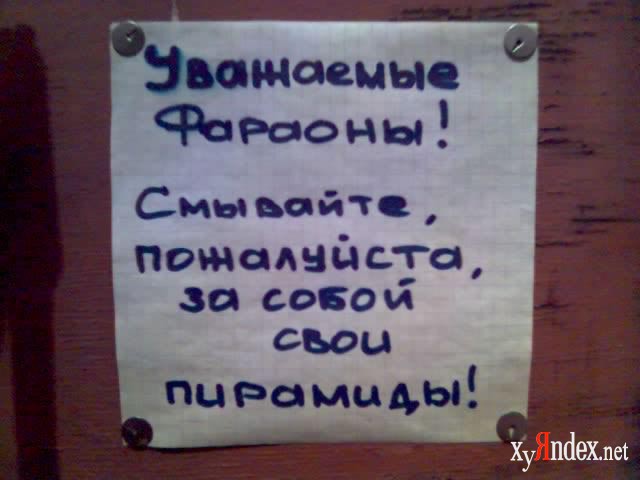 Уважаемые
Фараоны!
Смывайте,
пожалуйста,
за собой
свои
пирамиды!
xyЯndex.net